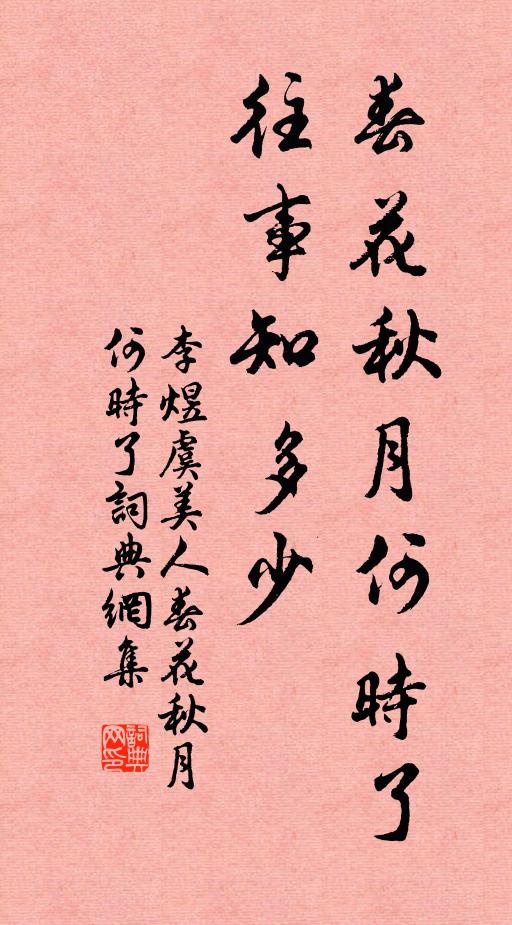 春花秋月何時了
往事知多少
李煜虞美人春花秋月
何時了詞典網集
詞典
网印